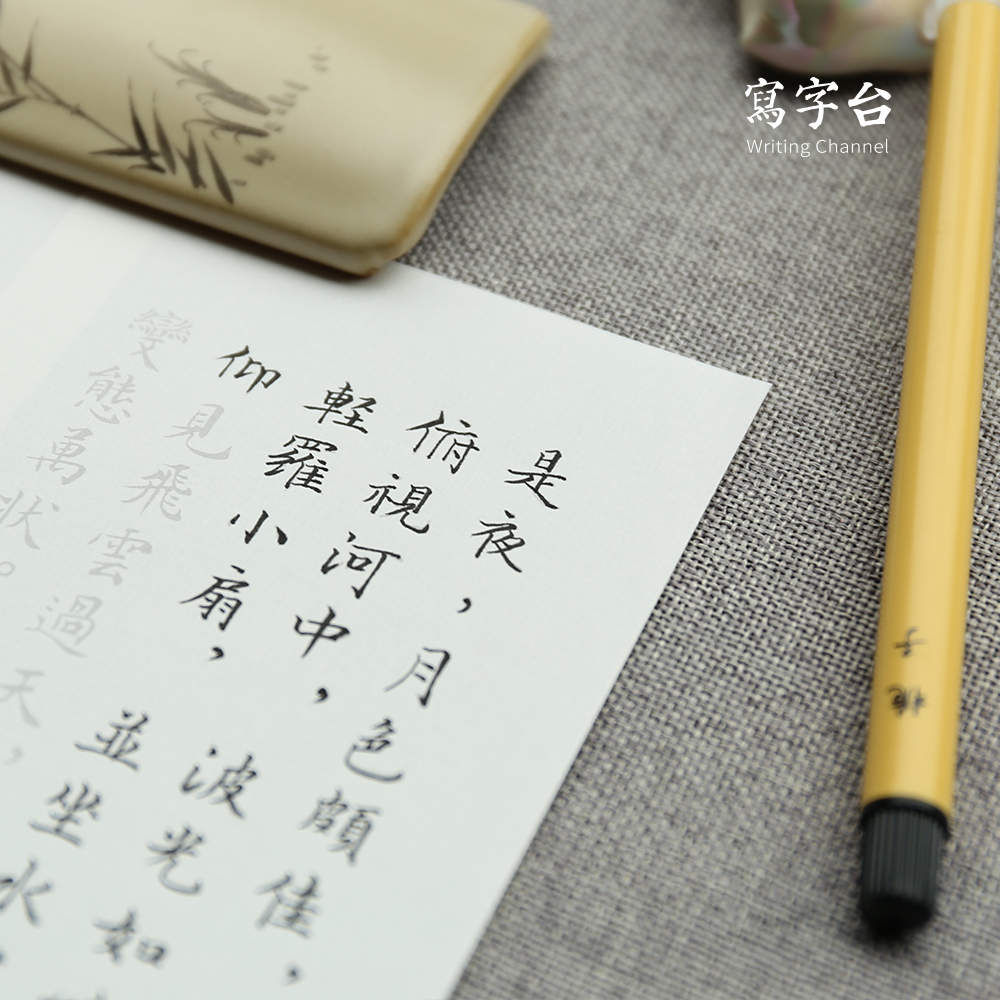 寫字台
Writing Channel
是夜，月色頗佳，
俯視河中，波光如
軽羅小扇，並坐水
仰見飛雲過天，
變態萬狀。